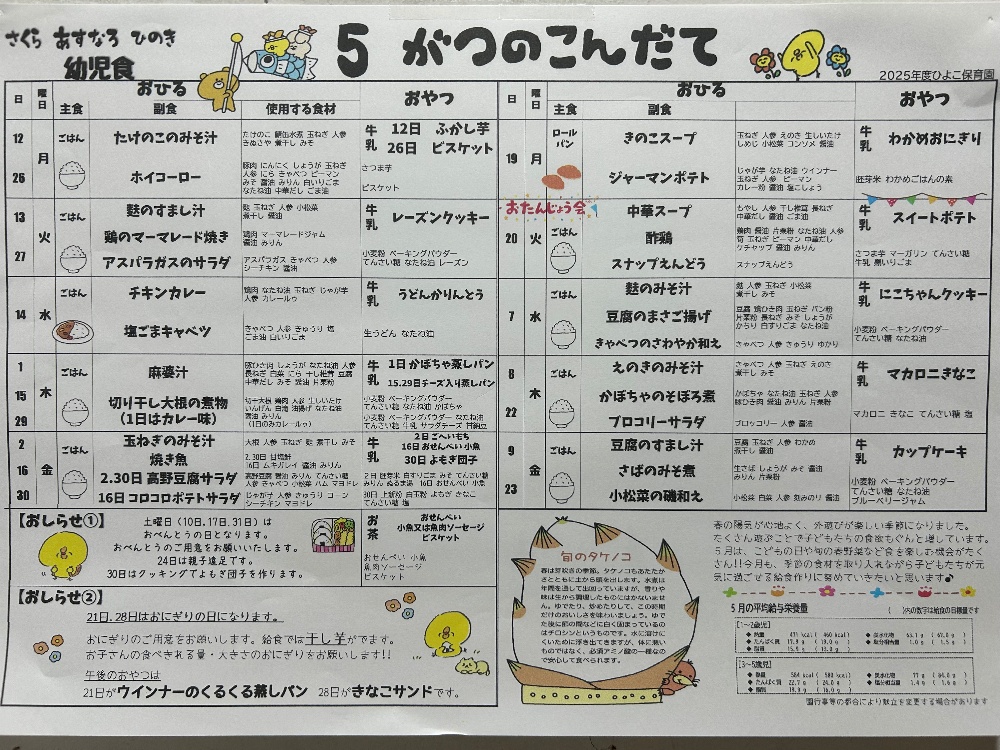 さくら あすなろ ひのき
幼児食
5 がつのこんだて
2025年度ひよこ保育園
日 曜日 おひる おやつ
主食 副食 使用する食材
12 26 月 ごはん
たけのこのみそ汁
ホイコーロー
たけのこ 鯖缶水煮 玉ねぎ 人参
きぬさや 煮干し みそ
豚肉 にんにく しょうが 玉ねぎ
人参 にら きゃべつ ピーマン
みそ 醤油 みりん 白いりごま
なたね油 中華だし ごま油
牛乳 12日 ふかし芋
26日 ビスケット
さつま芋
ビスケット
13 27 火 ごはん
麩のすまし汁
鶏のマーマレード焼き
アスパラガスのサラダ
麩 玉ねぎ 人参 小松菜
煮干し 醤油
鶏肉 マーマレードジャム
醤油 みりん
アスパラガス きゃべつ 人参
シーチキン 醤油
牛乳 レーズンクッキー
小麦粉 ベーキングパウダー
てんさい糖 なたね油 レーズン
14 水 ごはん
チキンカレー
塩ごまキャベツ
鶏肉 なたね油 玉ねぎ じゃが芋
人参 カレールゥ
きゃべつ 人参 きゅうり 塩
ごま油 白いりごま
牛乳 うどんかりんとう
生うどん なたね油
1 15 29 木 ごはん
麻婆汁
切り干し大根の煮物
(1日はカレー味)
豚ひき肉 しょうが なたね油 人参
長ねぎ 白菜 にら 干し椎茸 豆腐
中華だし みそ 醤油 片栗粉
切干大根 鶏肉 人参 生しいたけ
いんげん 白滝 油揚げ なたね油
醤油 みりん
(1日のみカレールゥ)
牛乳 1日 かぼちゃ蒸しパン
15.29日チーズ入り蒸しパン
小麦粉 ベーキングパウダー
てんさい糖 なたね油 かぼちゃ
小麦粉 ベーキングパウダー なたね油
2 16 30 金 ごはん
玉ねぎのみそ汁
焼き魚
2.30日 高野豆腐サラダ
16日 コロコロポテトサラダ
大根 人参 玉ねぎ 麩 煮干し みそ
2.30日 甘塩鮭
16日 ムキガレイ 醤油 みりん
高野豆腐 醤油 みりん てんさい糖
人参 きゃべつ 小松菜 ハム マヨドレ
じゃが芋 人参 きゅうり コーン
シーチキン マヨドレ
牛乳 2日 ごへいもち
16日 おせんべい 小魚
30日 よもぎ団子
2日 胚芽米 白すりごま みそ てんさい糖
みりん ぬるま湯 16日 おせんべい 小魚
30日 上新粉 白玉粉 よもぎ きなこ
てんさい糖 塩
【おしらせ①】
土曜日(10日.17日.31日)は
おべんとうの日となります。
おべんとうのご用意をお願いいたします。
24日は親子遠足です。
30日はクッキングでよもぎ団子を作ります。
お茶 おせんべい
小魚又は魚肉ソーセージ
ビスケット
おせんべい 小魚
魚肉ソーセージ
ビスケット
【おしらせ②】
21日.28日はおにぎりの日になります。
おにぎりのご用意をお願いします。給食では干し芋がでます。
お子さんの食べきれる量・大きさのおにぎりをお願いします!!
午後のおやつは
21日がウインナーのくるくる蒸しパン 28日がきなこサンドです。
日 曜日 おひる おやつ
主食 副食
19 月 ロールパン
きのこスープ
ジャーマンポテト
玉ねぎ 人参 えのき 生しいたけ
しめじ 小松菜 コンソメ 醤油
じゃが芋 なたね油 ウインナー
玉ねぎ 人参 ピーマン
カレー粉 醤油 塩こしょう
牛乳 わかめおにぎり
胚芽米 わかめごはんの素
おたんじょう会
20 火 ごはん
中華スープ
酢鶏
スナップえんどう
もやし 人参 干し椎茸 長ねぎ
中華だし 醤油 ごま油
鶏肉 醤油 片栗粉 なたね油 人参
筍 玉ねぎ ピーマン 中華だし
ケチャップ 醤油 みりん
スナップえんどう
牛乳 スイートポテト
さつま芋 マーガリン てんさい糖
牛乳 黒いりごま
7 水 ごはん
麩のみそ汁
豆腐のまさご揚げ
きゃべつのさわやか和え
麩 人参 玉ねぎ 小松菜
煮干し みそ
豆腐 鶏ひき肉 玉ねぎ パン粉
片栗粉 長ねぎ みそ しょうが
かちり 白すりごま なたね油
きゃべつ 人参 きゅうり ゆかり
牛乳 にこちゃんクッキー
小麦粉 ベーキングパウダー
てんさい糖 なたね油
8 22 木 ごはん
えのきのみそ汁
かぼちゃのそぼろ煮
ブロコリーサラダ
きゃべつ 人参 玉ねぎ えのき
煮干し みそ
かぼちゃ なたね油 玉ねぎ 人参
豚ひき肉 醤油 みりん 片栗粉
ブロッコリー 人参 醤油
牛乳 マカロニきなこ
マカロニ きなこ てんさい糖 塩
9 23 金 ごはん
豆腐のすまし汁
さばのみそ煮
小松菜の磯和え
豆腐 玉ねぎ 人参 わかめ
煮干し 醤油
生さば しょうが みそ 醤油
みりん 片栗粉
小松菜 白菜 人参 刻みのり 醤油
牛乳 カップケーキ
小麦粉 ベーキングパウダー
てんさい糖 なたね油
ブルーベリージャム
旬のタケノコ
春は芽吹きの季節。タケノコもあたたか
さとともに土から顔を出します。水煮は
年間を通して出回っていますが、香りや
味は生から調理したものにはかないませ
ん。ゆでたり、炒めたりして、この時期
だけのおいしさを味わいましょう。ゆで
た後に節の間などに白く固まっているの
はチロシンというものです。水に溶けに
くいために浮き出てきますが、体に悪い
ものではなく、必須アミノ酸の一種なの
で安心して食べられます。
春の陽気が心地よく、外遊びが楽しい季節になりました。
たくさん遊ぶことで子どもたちの食欲もぐんと増しています。
5月は、こどもの日や旬の春野菜など食を楽しむ機会がたく
さん!!今月も、季節の食材を取り入れながら子どもたちが元
気に過ごせる給食作りに努めていきたいと思います♪
5月の平均給与栄養量
( )内の数字は給食の目標量です
【1~2歳児】
◆ 熱量 471 kcal ( 460 kcal)
◆ たんぱく質 17.9 g
◆ 脂質
◆ 炭水化物
◆ 塩分相当量
【3~5歳児】
◆ 熱量 584 kcal ( 580 kcal)
◆ たんぱく質 22.7 g
◆ 脂質
◆ 炭水化物 77 g
◆ 塩分相当量
園行事等の都合により献立を変更する場合があります